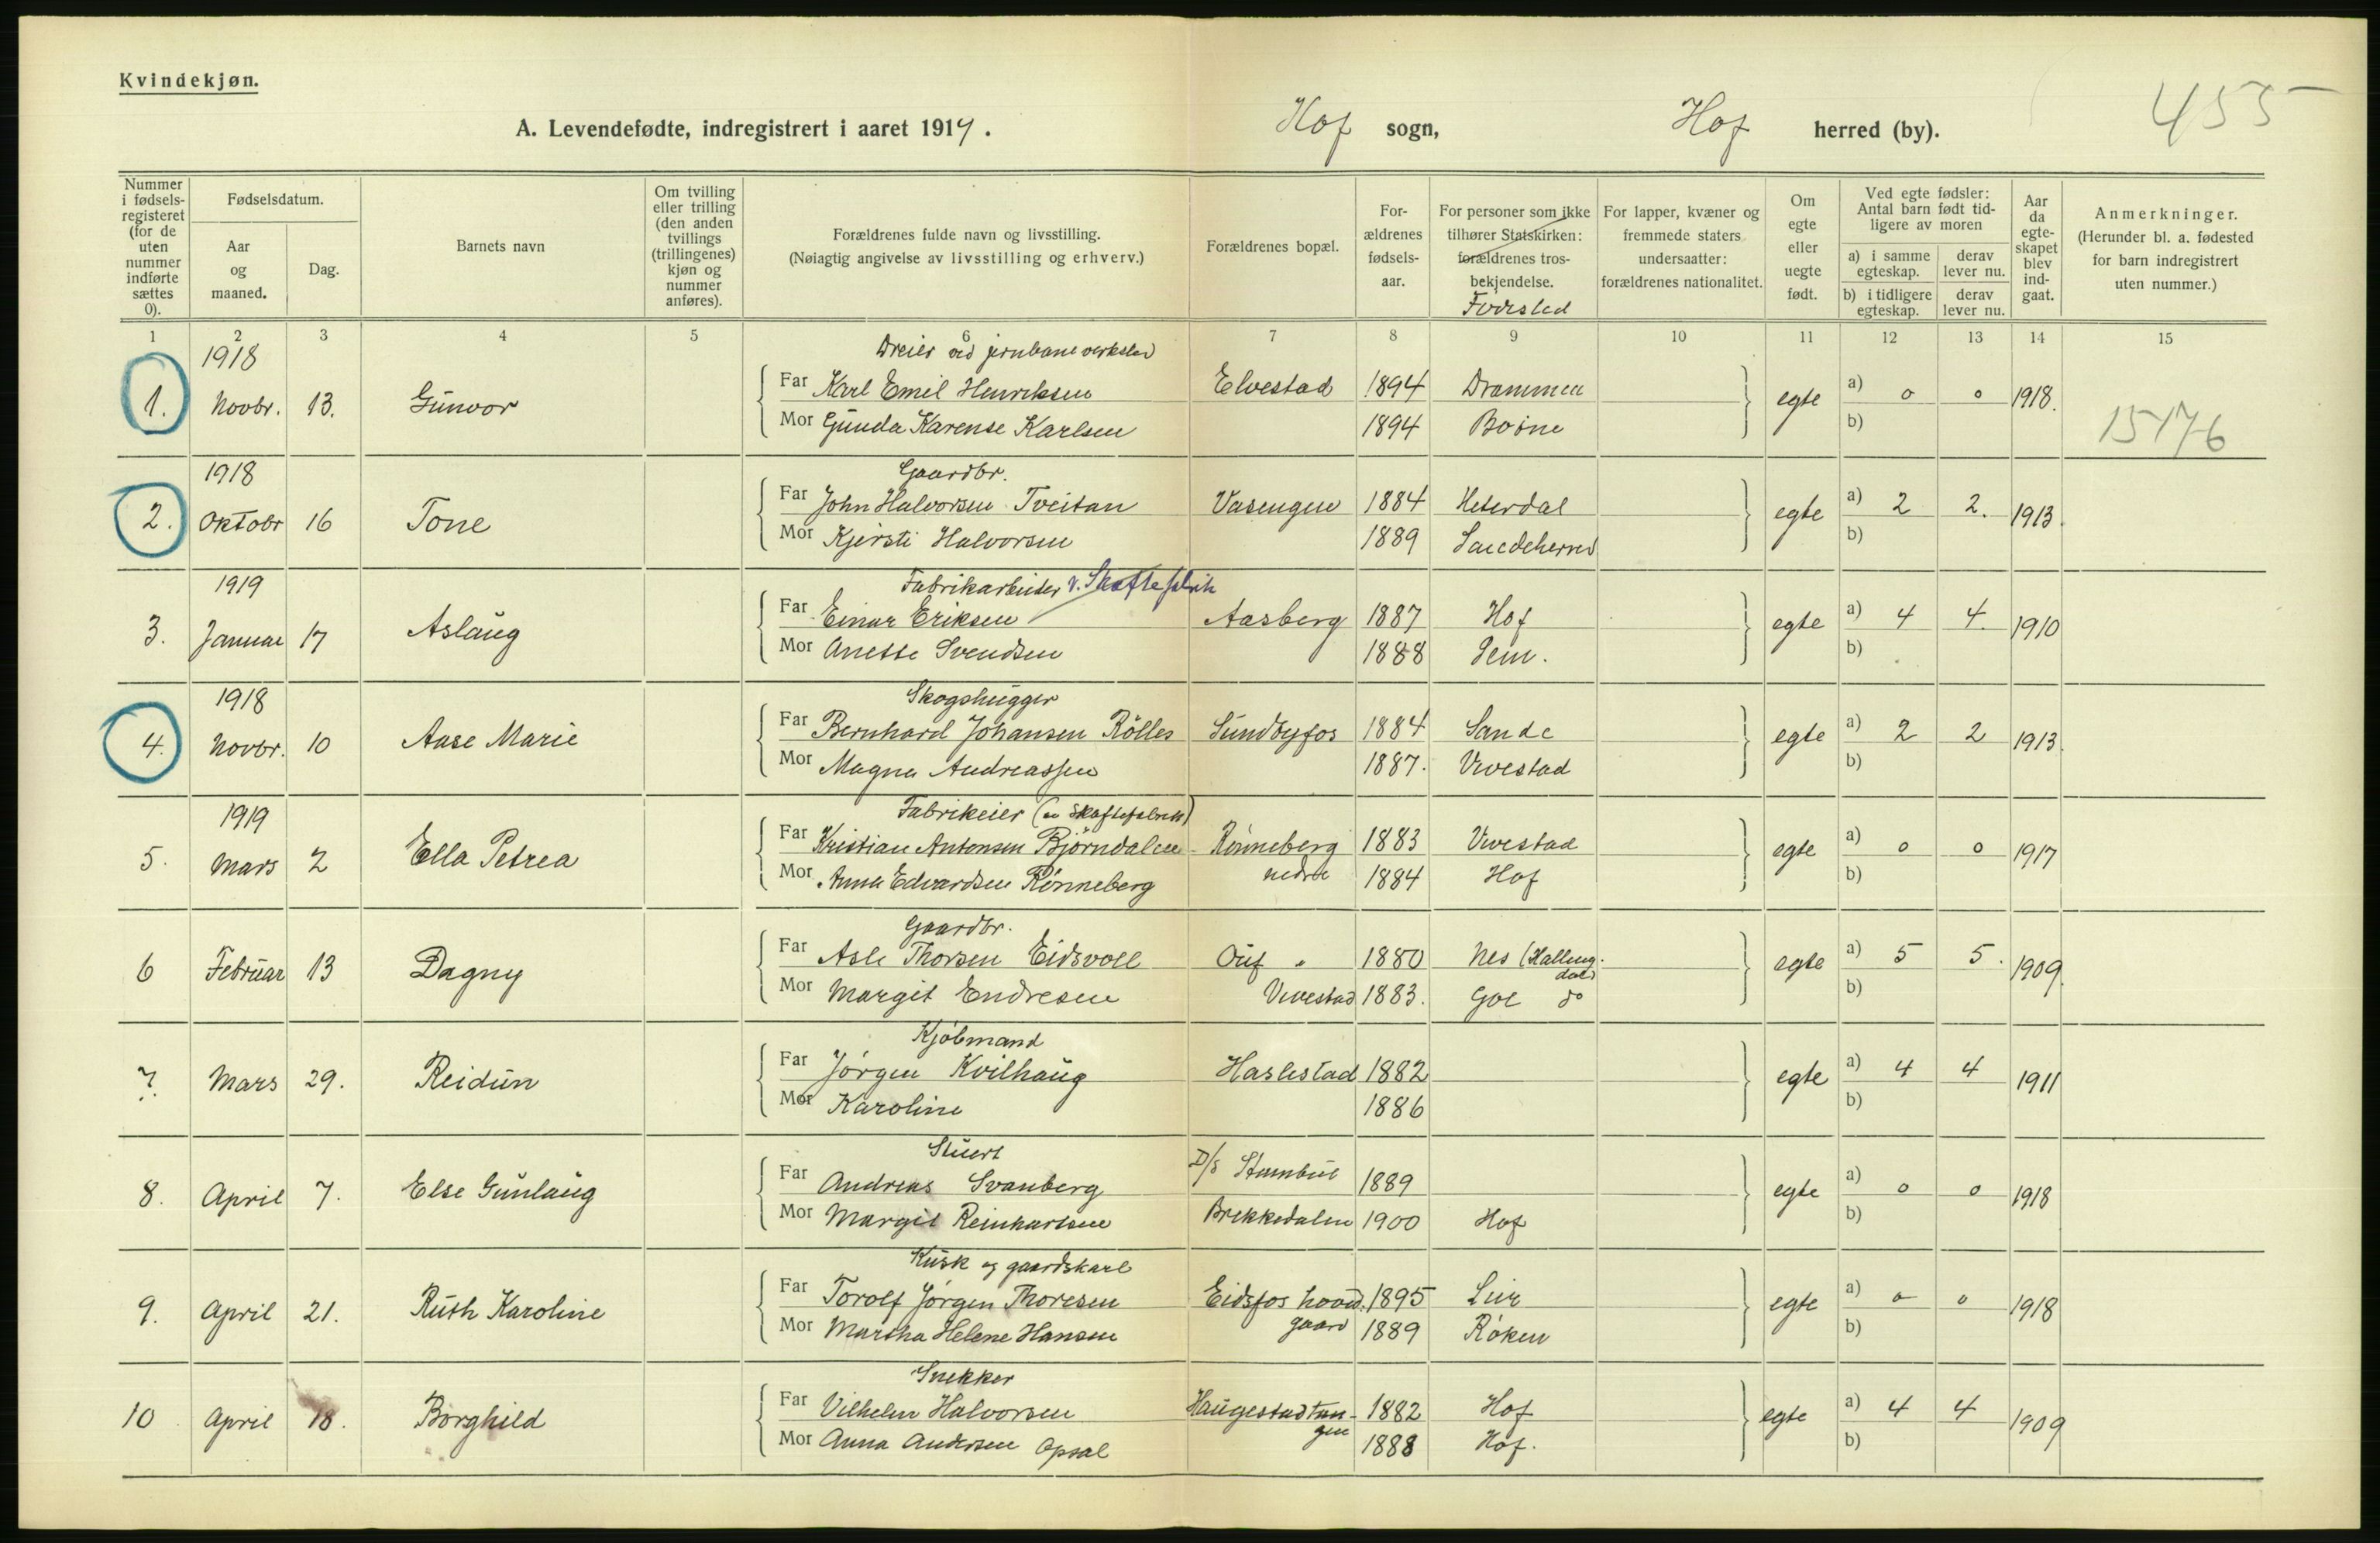 Kvindekjøn.
A. Levendefødte, indregistrert i aaret 1919. Hof sogn, Hof herred (by). 455
Nummer i fødsels-registeret (for de uten nummer indførte sættes 0).
Fødselsdatum.
Aar og maaned.
Dag.
Barnets navn
Om tvilling eller trilling (den anden tvillings (trillingenes) kjøn og nummer anføres).
Forældrenes fulde navn og livsstilling.
(Nøiagtig angivelse av livsstilling og erhverv.)
Forældrenes bopæl.
For-ældrenes fødsels-aar.
For personer som ikke tilhører Statskirken: forældrenes tros-bekjendelse.
Fødested
For lapper, kvæner og fremmede staters undersaatter: forældrenes nationalitet.
Om egte eller uegte født.
Ved egte fødsler: Antal barn født tid-ligere av moren
a) i samme egteskap. derav lever nu.
b) i tidligere egteskap. derav lever nu.
Aar da egte-skapet blev ind-gaat.
Anmerkninger.
(Herunder bl. a. fødested for barn indregistrert uten nummer.)
1 2 3 4 5 6 7 8 9 10 11 12 13 14 15
1918 Dreier ved jernbaneverksted
1. Novbr. 13. Gunvor Far Karl Emil Henriksen Elvestad 1894 Drammen egte a) 0 0 1918.
Mor Gunda Karense Karlsen 1894 Botne b) 15176
1918 Gaardbr.
2. Oktobr 16 Tone Far John Halvorsen Tveitan Vasengen 1884 Heterdal egte a) 2 2. 1913.
Mor Kjersti Halvorsen 1889 Sandeherred b)
1919 Fabrikarbeider v. Skaftefabrik
3. Januar 17 Aslaug Far Einar Eriksen Aasberg 1887 Hof egte a) 4 4. 1910
Mor Anette Svendsen 1888 Sem. b)
1918 Skogshugger
4. Novbr. 10 Aase Marie Far Bernhard Johansen Rølles Sundbyfos 1884 Sande egte a) 2 2 1913.
Mor Magna Andreassen 1887. Vivestad b)
1919 Fabrikeier (en Skaftefabrik)
5. Mars 2 Ella Petrea Far Kristian Antonsen Bjørndalen Rønneberg 1883 Vivestad egte a) 0 0 1917
Mor Anna Edvardsen Rønneberg nedre 1884 Hof b)
Gaardbr.
6 Februar 13 Dagny Far Asle Thorsen Eidsvoll 1880 Nes (Halling-dal) egte a) 5 5. 1909.
Mor Margit Endresen Vivestad 1883. Gol do b)
Kjøbmand
7. Mars 29. Reidun Far Jørgen Kvilhaug Haslestad 1882 egte a) 4 4 1911
Mor Karoline 1886 b)
Stuert
8. April 7. Else Gunlaug Far Andreas Svanberg D/S Stambul 1889 egte a) 0 0 1918
Mor Margit Reinhartsen Brekkedalen 1900 Hof b)
Kusk og gaardskarl
9. April 21. Ruth Karoline Far Torolf Jørgen Thoresen Eidsfos hoved. 1895 Lier egte a) 0 0 1918
Mor Martha Helene Hansen gaard 1889 Røken b)
Snekker
10 April 18. Borghild Far Vilhelm Halvorsen Haugestadtan- 1882 Hof egte a) 4 4 1909
Mor Anna Andersen Opsal gen 1888 Hof. b)